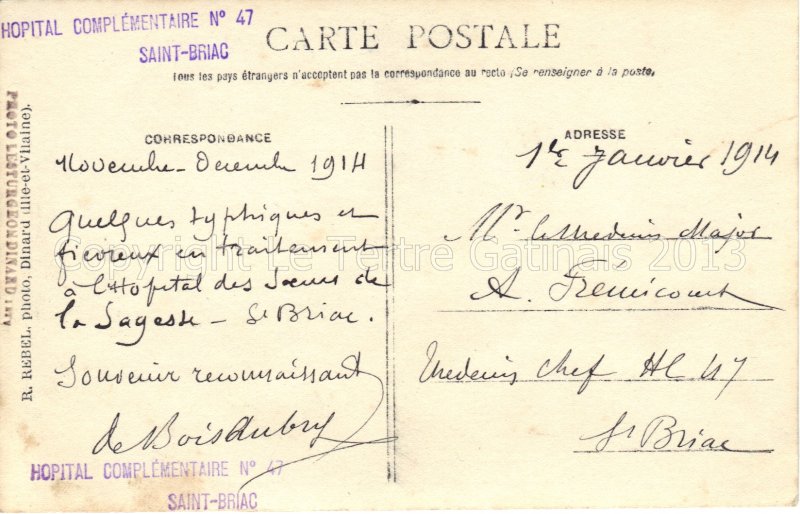 HOPITAL COMPLÉMENTAIRE N° 47
SAINT-BRIAC
CARTE POSTALE
Tous les pays étrangers n'acceptent pas la correspondance au recto (Se renseigner à la poste)
CORRESPONDANCE
Novembre - Decembre 1914
Quelques typhiques et
fievreux en traitement
à l'Hopital des Sœurs de
la Sagesse - St Briac.
Souvenir reconnaissant
de Boisaubry
HOPITAL COMPLÉMENTAIRE N° 47
SAINT-BRIAC
ADRESSE
1er Janvier 1914
Mr le Medecin Major
A. Fremicourt
Medecin Chef HC 47
St Briac
R. REBEL, photo, Dinard (Ille-et-Vilaine).
PHOTO LESTURGEON DINARD
Copyright Le Tertre Gatinais 2013